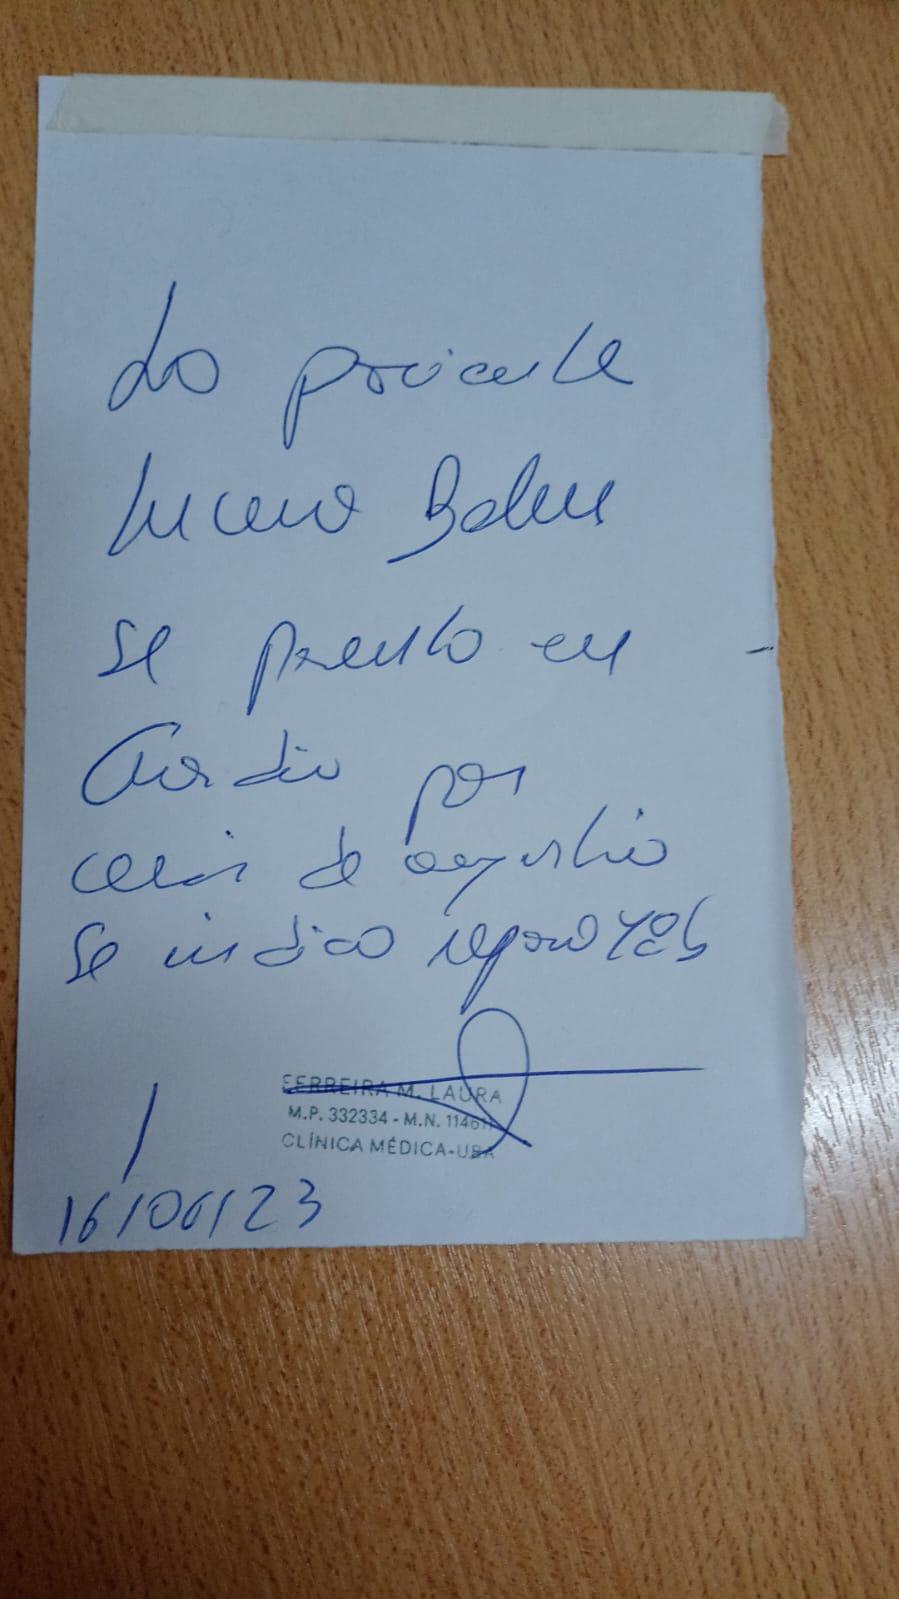 La paciente
Lucero Belen
se presento en
Guardia por
crisis de angustia
se indica reposo 48h
FERREIRA M. LAURA
M.P. 332334 - M.N. 114611
CLÍNICA MÉDICA-UBA
16/06/23